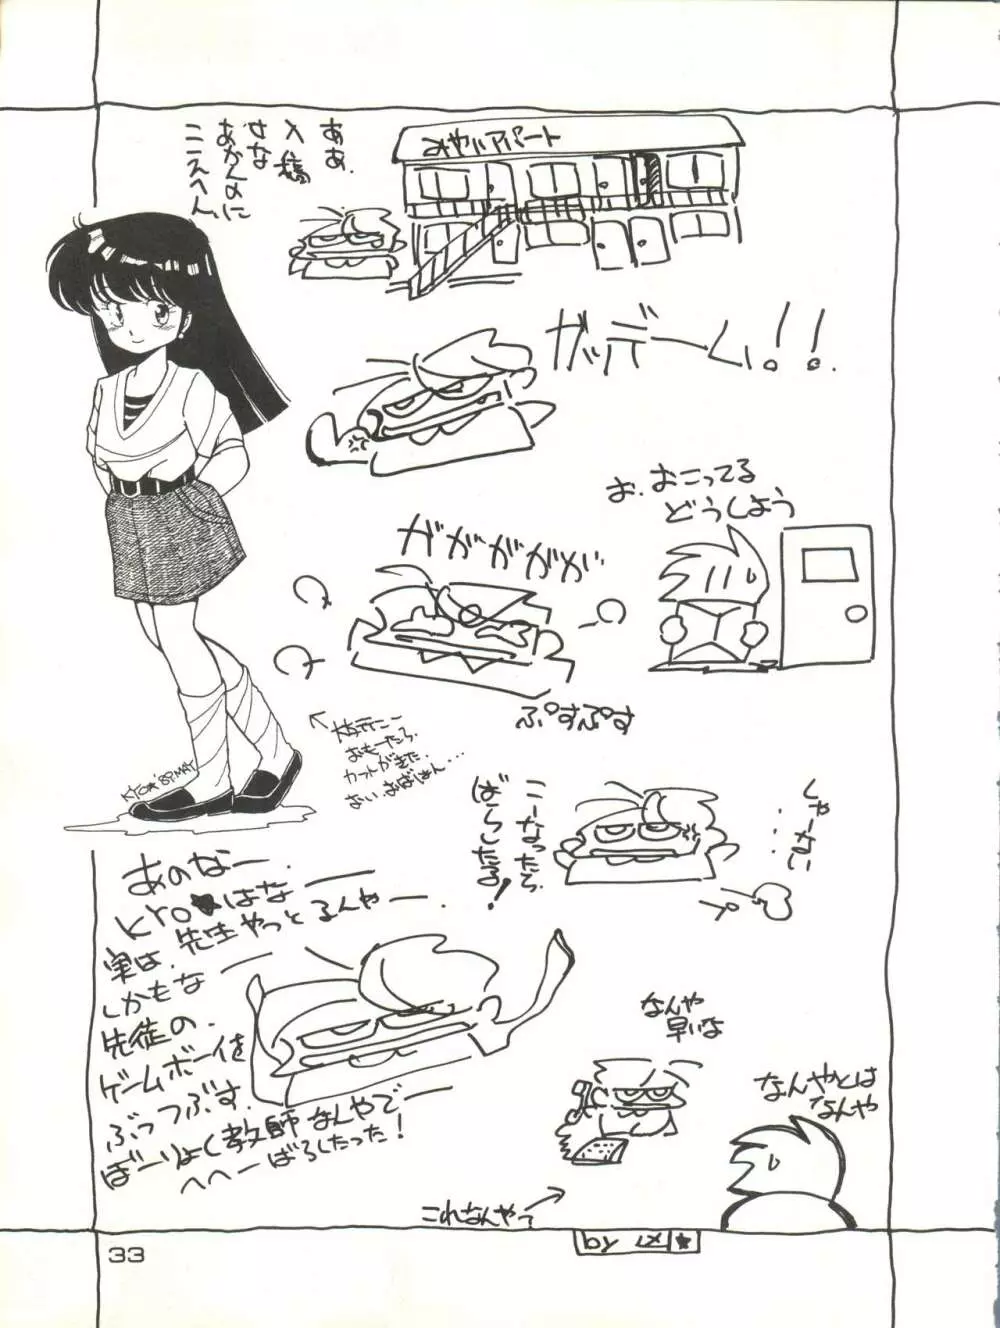 ああ.
入稿
すな
あかんのに
こえへん
みやハイアパート
ガッデーム!!
お.おこってる
どうしよう
ガガガガガ
ぷすぷす
おもーたろ.
カットがきた.
KYO★'89.MAY
こーなったら.
ばらしたる!
しゃーない
・・・
あのなー.
KYO★はな
実は.先生やっとるんやー.
しかもな
先徒の.
ゲームボーイを
ぶっつぶす.
ぼーりょく教師なんやでー
へへーばらしたった!
なんや
早いな
なんやとは
なんや
これなんやって
by
33